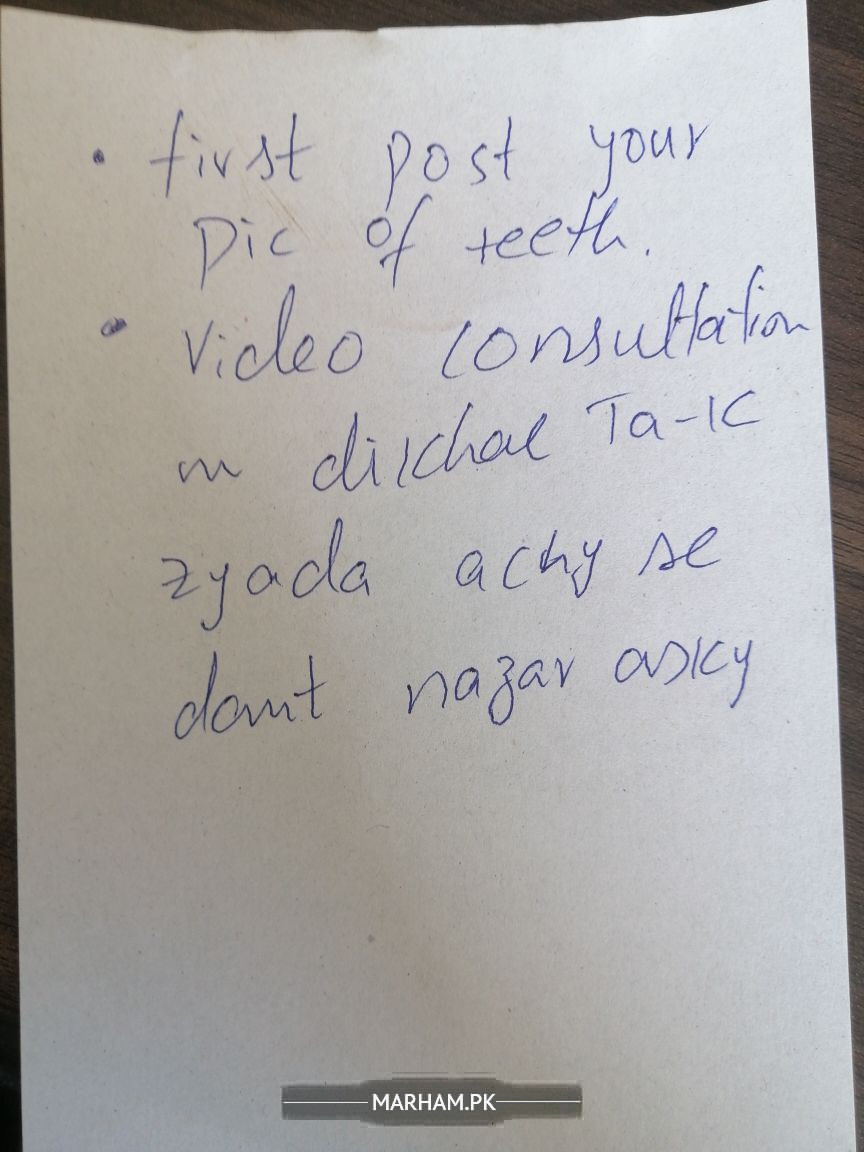 • first post your
pic of teeth.
• Video consultation
m dikhae Ta-k
zyada achy se
dant nazar asky
MARHAM.PK